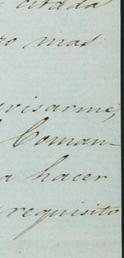 citada
to mas
avisarme,
l Coman-
a hacer
requisito